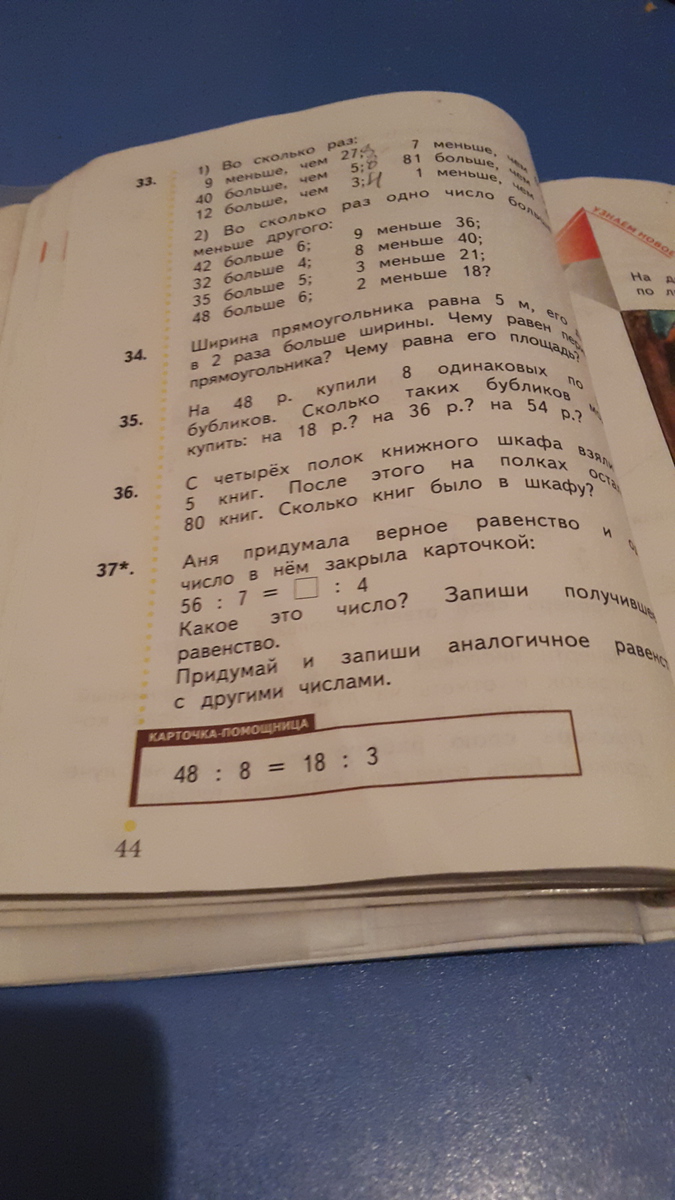 33. 1) Во сколько раз:
9 меньше, чем 27; 3 7 меньше, чем
40 больше, чем 5; 8 81 больше, чем
12 больше, чем 3; 4 1 меньше, чем
2) Во сколько раз одно число
меньше другого:
42 больше 6; 9 меньше 36;
32 больше 4; 8 меньше 40;
35 больше 5; 3 меньше 21;
48 больше 6; 2 меньше 18?
34. Ширина прямоугольника равна 5 м, его
в 2 раза больше ширины. Чему равен
прямоугольника? Чему равна его площадь?
35. На 48 р. купили 8 одинаковых по
бубликов. Сколько таких бубликов
купить: на 18 р.? на 36 р.? на 54 р.?
36. С четырёх полок книжного шкафа взяли
5 книг. После этого на полках
80 книг. Сколько книг было в шкафу?
37*. Аня придумала верное равенство и
число в нём закрыла карточкой:
56 : 7 = □ : 4
Какое это число? Запиши
равенство.
Придумай и запиши аналогичное
с другими числами.
КАРТОЧКА-ПОМОЩНИЦА
48 : 8 = 18 : 3
44
УЗНАЁМ НОВОЕ
На
по